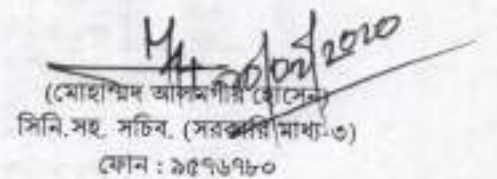 20/02/2020
(মোহাম্মদ আলমগীর হোসেন)
সিনি.সহ. সচিব. (সরকারি মাধ্য-৩)
ফোন : ৯৫৭৬৭৮০